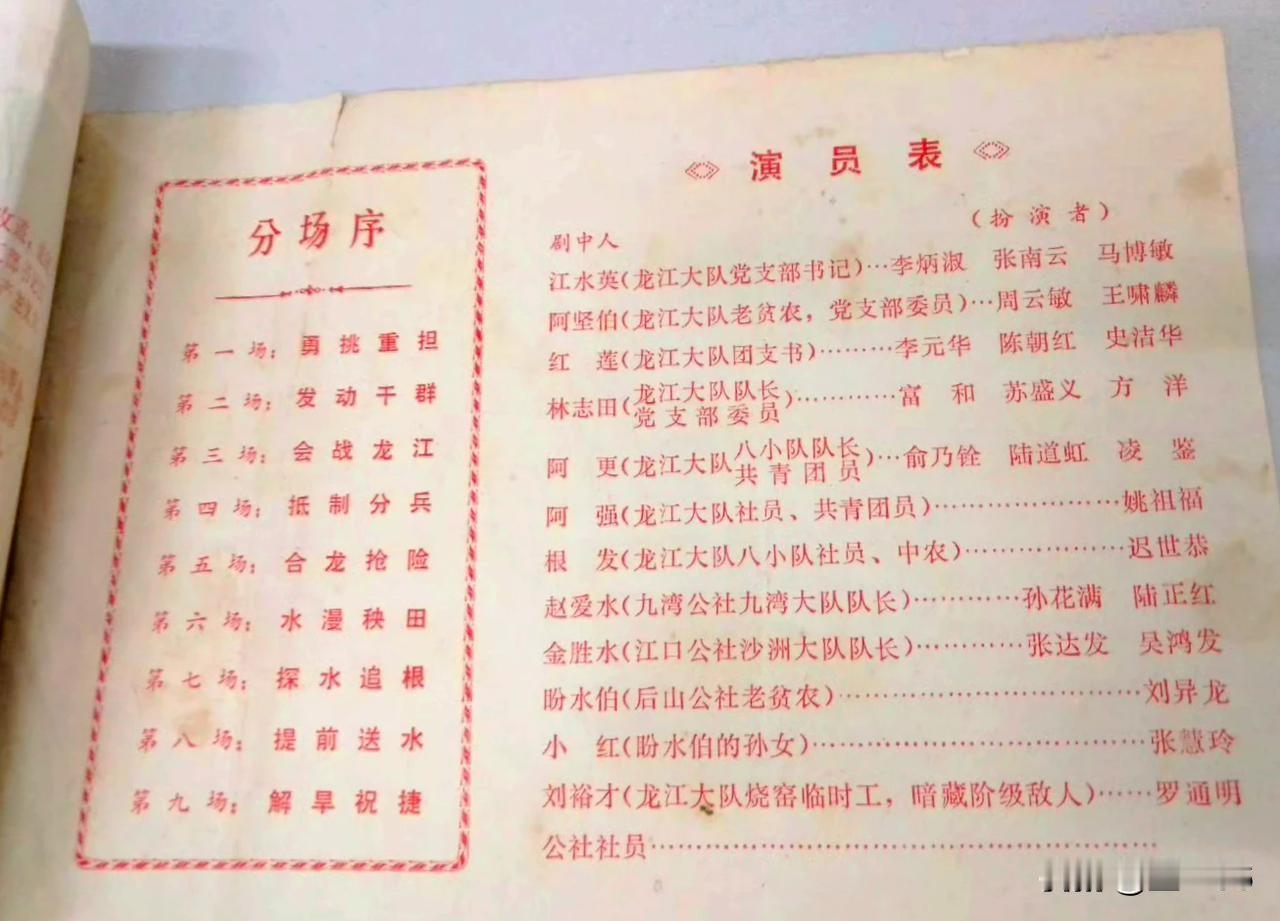 分场序
第一场：勇挑重担
第二场：发动干群
第三场：会战龙江
第四场：抵制分兵
第五场：合龙抢险
第六场：水漫秧田
第七场：探水追根
第八场：提前送水
第九场：解旱祝捷
演员表
剧中人 （扮演者）
江水英（龙江大队党支部书记）…李炳淑 张南云 马博敏
阿坚伯（龙江大队老贫农，党支部委员）…周云敏 王啸麟
红莲（龙江大队团支书）………李元华 陈朝红 史洁华
林志田（龙江大队队长
党支部委员）…………富和 苏盛义 方洋
阿更（龙江大队八小队队长
共青团员）…俞乃铨 陆道虹 凌鉴
阿强（龙江大队社员、共青团员）…………………姚祖福
根发（龙江大队八小队社员、中农）………………迟世恭
赵爱水（九湾公社九湾大队队长）…………孙花满 陆正红
金胜水（江口公社沙洲大队队长）…………张达发 吴鸿发
盼水伯（后山公社老贫农）………………………………刘异龙
小红（盼水伯的孙女）…………………………………张慧玲
刘裕才（龙江大队烧窑临时工，暗藏阶级敌人）……罗通明
公社社员……………………………………………………